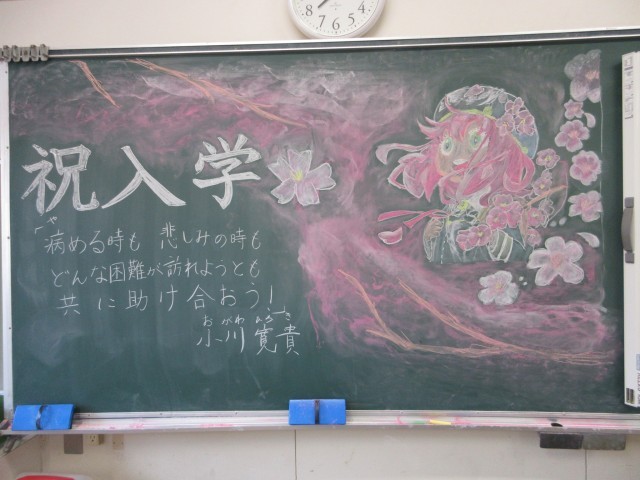 祝入学
病める時も 悲しみの時も
どんな困難が訪れようとも
共に助け合おう!
おがわ ひろき
小川 寛貴